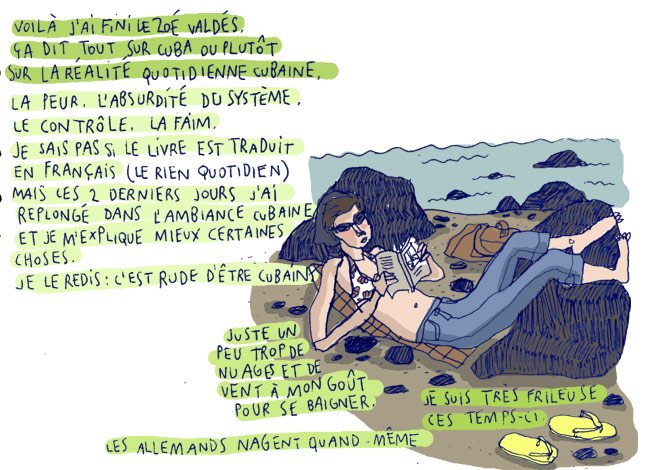 VOILÀ J'AI FINI LE ZOÉ VALDÉS,
ÇA DIT TOUT SUR CUBA OU PLUTÔT
SUR LA RÉALITÉ QUOTIDIENNE CUBAINE,
LA PEUR. L'ABSURDITÉ DU SYSTÈME.
LE CONTRÔLE. LA FAIM.
JE SAIS PAS SI LE LIVRE EST TRADUIT
EN FRANÇAIS (LE RIEN QUOTIDIEN)
MAIS CES 2 DERNIERS JOURS J'AI
REPLONGÉ DANS L'AMBIANCE CUBAINE
ET JE M'EXPLIQUE MIEUX CERTAINES
CHOSES.
JE LE REDIS : C'EST RUDE D'ÊTRE CUBAIN
JUSTE UN
PEU TROP DE
NUAGES ET DE
VENT À MON GOÛT
POUR SE BAIGNER.
JE SUIS TRÈS FRILEUSE
CES TEMPS-CI.
LES ALLEMANDS NAGENT QUAND-MÊME